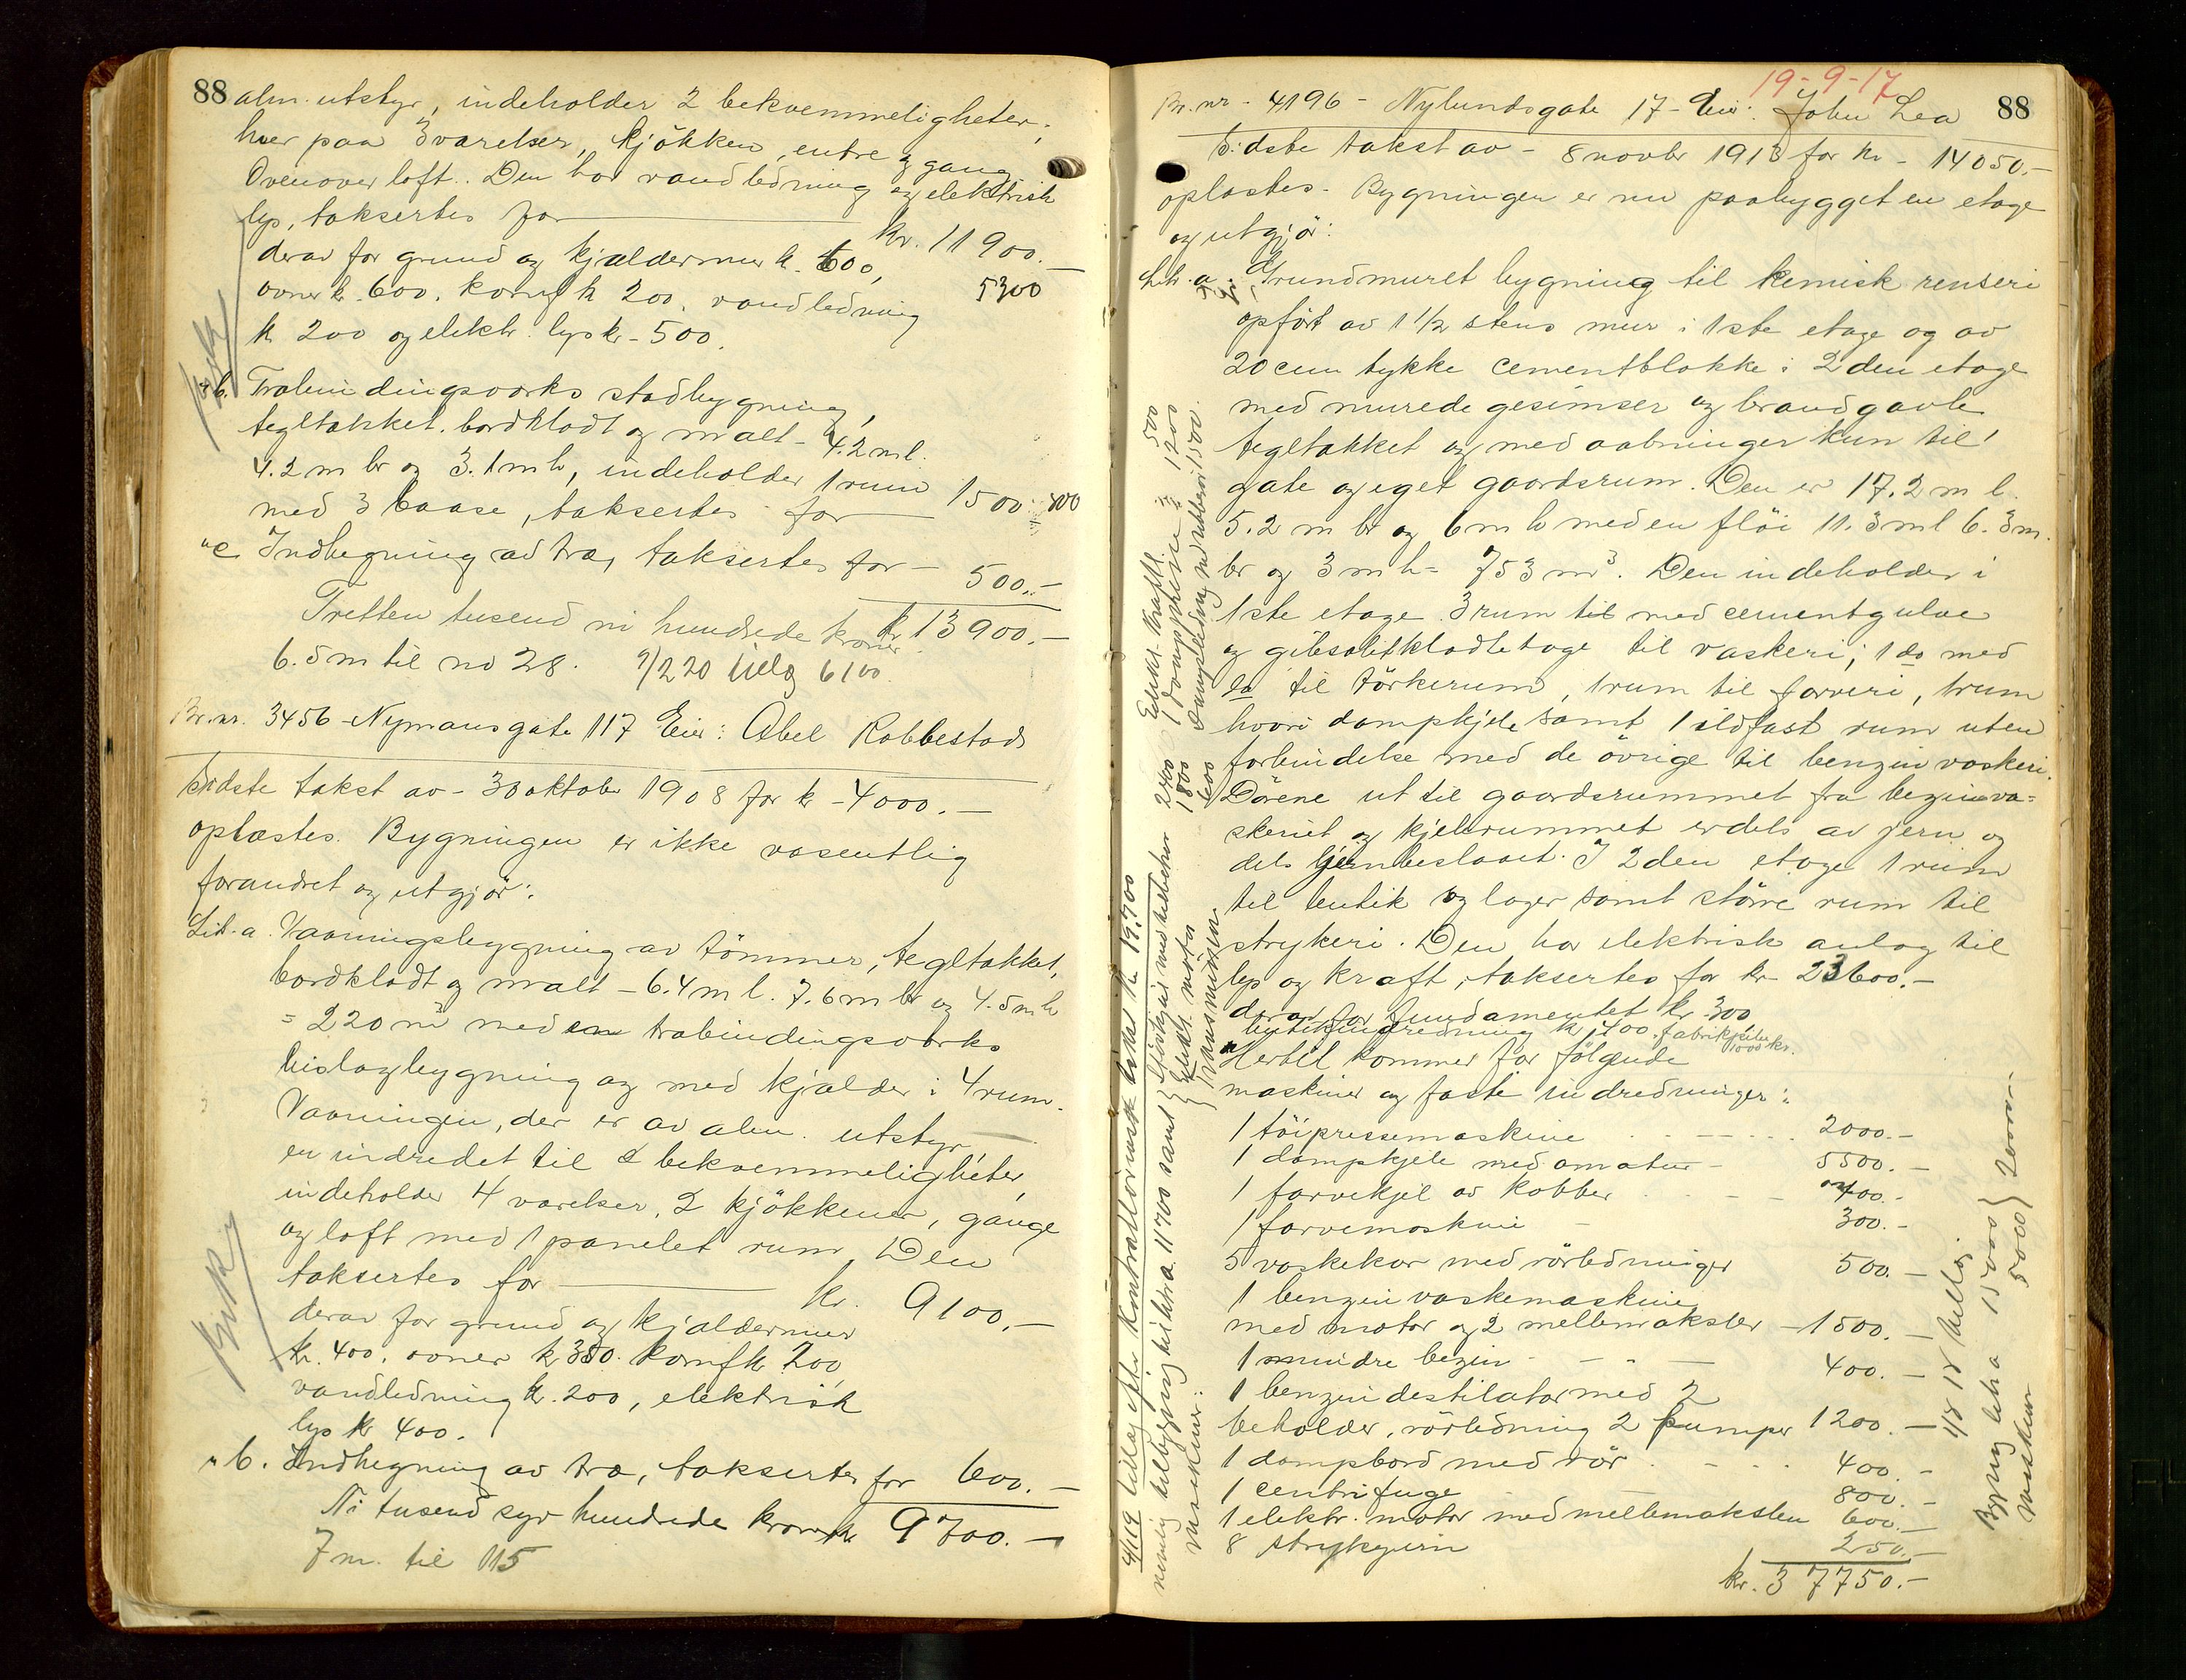 88
alm. utstyr, indeholder 2 bekvemmeligheter,
hver paa 3 værelser, kjökken, entre og gang.
Ovenover loft. Den har vandledning og elektrisk
lys, taksertes for kr. 11900.—
derav for grund og kjældermur k. 600, 5300
ovner kr. 600. komf k 200. vandledning
k 200 og elektr. lys kr - 500.
" b. Træbindingsværks stadbygning,
tegltækket, bordklædt og malt - 4.2 m l.
4.2 m br og 3.1 m h, indeholder 1 rum
med 3 baase, taksertes for 1500.- 800
" c. Indhegning av træ, taksertes for - 500.-
Tretten tusend ni hundrede kroner kr 13900.—
6.5 m til no 28. 9/2 20 tillæg 6100.
Br.nr. 3456 - Nymansgate 117 Eier: Abel Robbestad
Sidste takst av - 30 oktober 1908 for kr - 4000.—
oplæstes. Bygningen er ikke væsentlig
forandret og utgjør:
Lit. a. Vaaningsbygning av tömmer, tegltækket,
bordklædt og malt - 6.4 m l. 7.6 m br og 4.5 m h
= 220 m³ med en træbindingsværks
bislagbygning og med kjælder i 4 rum.
Vaaningen, der er av alm. utstyr,
er indredet til 2 bekvemmeligheter,
indeholder 4 værelser, 2 kjökkener, gange
og loft med 1 panelet rum. Den
taksertes for kr. 9100.—
derav for grund og kjældermur
kr. 400. ovner k 350. komf k 200,
vandledning k. 200, elektrisk
lys kr 400.
" b. Indhegning av træ, taksertes for 600.—
Ni tusend syv hundrede kroner kr 9700.—
7 m. til 115
19-9-17
88
Br. nr - 4196 - Nylundsgate 17 - Eier: John Lea
Sidste takst av - 8 novbr 1913 for kr - 14050.-
oplæstes. Bygningen er nu paabygget en etage
og utgjör:
Lit. a. Grundmuret bygning til kemisk renseri
opfört av 1 1/2 stens mur i 1ste etage og av
20 cm tykke cementblokke i 2den etage
med murede gesimser og brandgavle
tegltækket og med aabninger kun til
gate og eget gaardsrum. Den er 17.2 m l.
5.2 m br og 6 m h med en flöi 11.3 m l 6.3 m.
br og 3 m h = 753 m³. Den indeholder i
1ste etage 3 rum til med cementgulve
og gibsolitklædte tage til vaskeri, 1 do med
do til törkerum, 1 rum til farveri, 1 rum
hvori dampkjele samt 1 ildfast rum uten
forbindelse med de övrige til benzinvaskeri.
Dörene ut til gaardsrummet fra bezinva=
skeriet og kjelerummet er dels av jern og
dels jernbeslaaet. I 2den etage 1 rum
til butik og lager samt större rum til
strykeri. Den har elektrisk anlæg til
lys og kraft, taksertes for kr 23600.-
derav for fundamentet kr. 300
butikindredning k 400. fabrikpibe 1000 kr.
Hertil kommer for fölgende
maskiner og faste indredninger:
1 töipressemaskine 2000.-
1 dampkjele med amatur - 5500.-
1 farvekjel av kobber 700.-
1 farvemaskine 300.-
5 vaskekar med rörledninger 500.-
1 benzin vaskemaskine
med motor og 2 mellemakster - 1500.-
1 mindre bezin - 400.-
1 benzin destilator med 2
beholder, rörledning 2 pumper 1200.-
1 dampbord med rör 400.-
1 centrifuge 800.-
1 elektr. motor med mellemakslen 600.-
8 strykejern 250.-
kr. 37750.-
4/1 19 tillæg efter kontrollörens takst kr. 19,700
nemlig tilbygning til litra a. 11700 samt
maskiner:
elektr. motor 1800
transmission 600
Elekt. kraftl. 500
1 damppresse 1200
Damplledning m/ ventiler 1500.
4/8 18 tillæg:
Bygning litra a 15000
maskiner 5000
20000.-